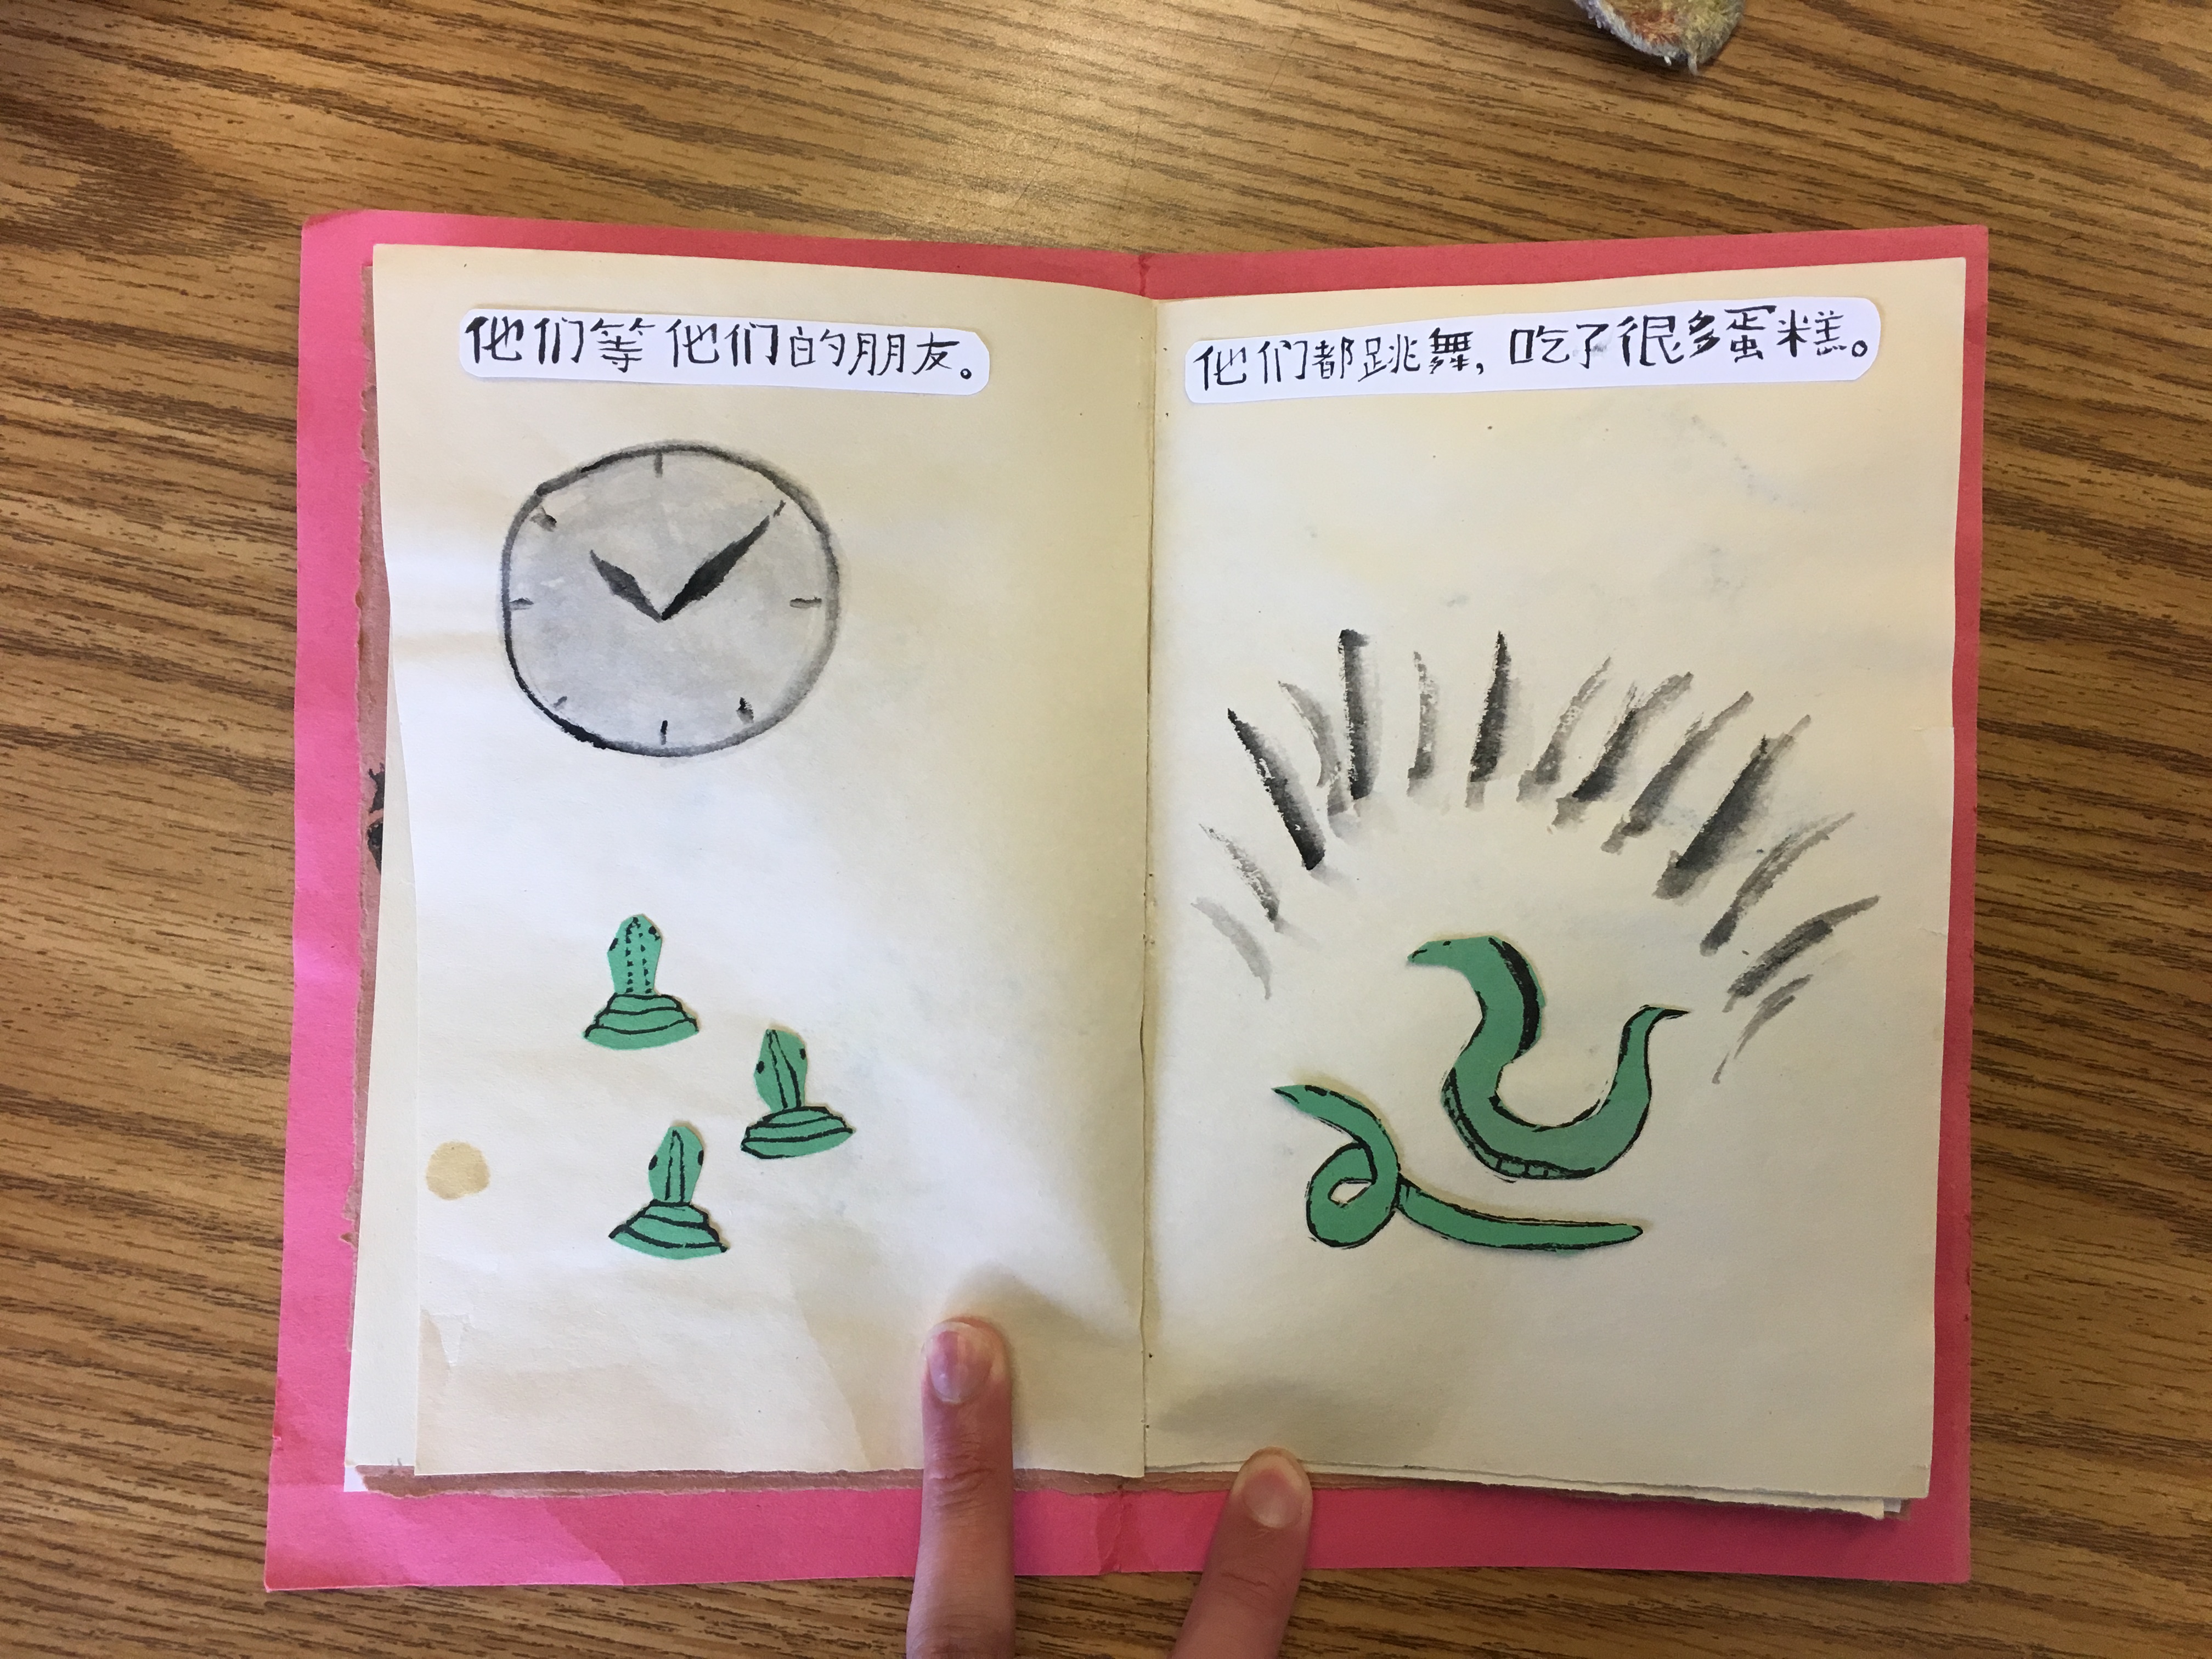 他们等他们的朋友。
他们都跳舞,吃了很多蛋糕。